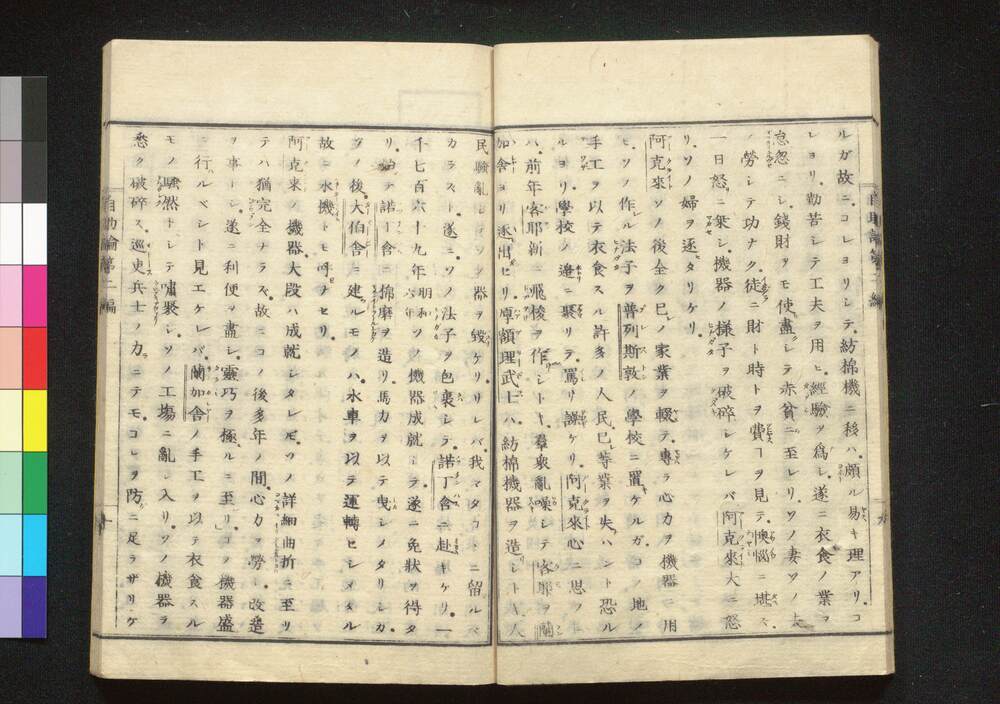 ルガ故ニコレヨリシテ紡棉機ニ移ハ頗ル易キ理アリコ
レヨリ勤苦シテ工夫ヲ用ヒ經驗ヲ為シ遂ニ衣食ノ業ヲ
怠忽ニシ錢財ヲモ使盡シテ赤貧ニ至レリソノ妻ソノ夫
ノ勞シテ功ナク徒ニ財ト時トヲ費ヿヲ見テ懊惱ニ堪ズ
一日怒ニ乘シ機器ノ様子ヲ破碎シケレバ阿克來大ニ怒
リソノ婦ヲ逐タリケリ
阿克來ソノ後全ク己ノ家業ヲ輟テ專ラ心力ヲ機器ニ用
ヒソノ作ル法子ヲ普列斯敦ノ學校ニ置ケルガコノ地ノ
手工ヲ以テ衣食スル許多ノ人民己等業ヲ失ハント恐ル
ルヨリ學校ノ邊ニ聚リテ罵リ譟ケリ阿克來心ニ思フ
ハ前年客耶新ニ飛梭ヲ作シトキ羣衆亂噪シテ客耶ヲ蘭
加舍ヨリ逐出セリ厚額理武士ハ紡棉機器ヲ造シトキ人
民騷亂シテソノ器ヲ毀ケリサレバ我マタココニ留ルベ
カラズト遂ニソノ法子ヲ包裹シテ諾丁舍ニ赴キケリ一
千七百六十九年明和六年ソノ機器成就シテ遂ニ免狀ヲ得タ
リ始テ諾丁舍ニ棉磨ヲ造リ馬力ヲ以テ曳シメタリシガ
ソノ後大伯舍ニ建ルモノハ水車ヲ以テ運轉セシメタル
故ニ水機トモ呼ナセリ
阿克來ノ機器大段ハ成就シタレモソノ詳細曲折ニ至リ
テハ猶完全ナラズ故ニコノ後多年ノ間心力ヲ勞シ改造
ヲ事トシ遂ニ利便ヲ盡シ靈巧ヲ極ルニ至リコノ機器盛
ニ行ハルベシト見エケレバ蘭加舍ノ手工ヲ以テ衣食スル
モノ騷然トシテ嘯聚シソノ工場ニ亂レ入リソノ機器ヲ
悉ク破碎ス巡吏兵士ノ力ニテモコレヲ防ニ足ラザリケ
自助論第二編
九
自助論第二編
十